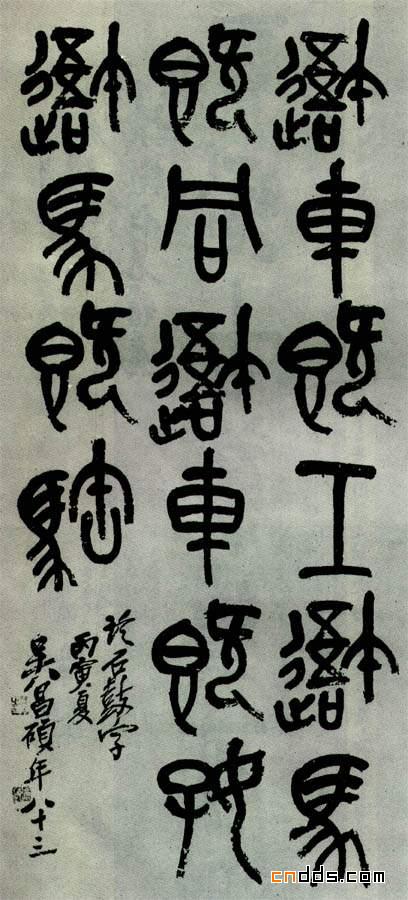 吾車既工吾馬
既同吾車既好
吾馬既𩣡
石鼓字
丙寅夏
吳昌碩年八十三
cndds.com